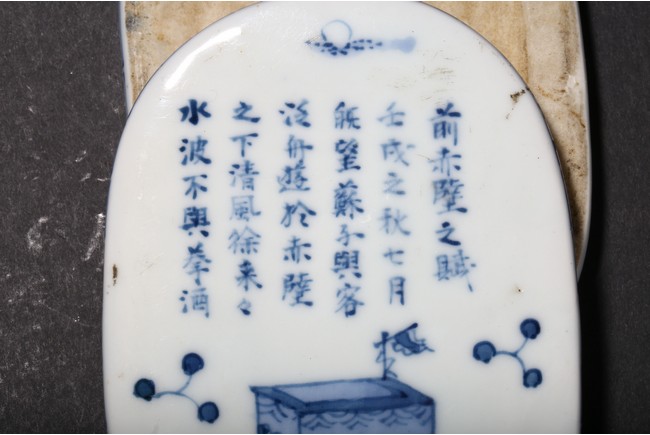 前赤壁之賦
壬戌之秋七月
既望蘇子與客
泛舟遊於赤壁
之下清風徐来々
水波不興挙酒